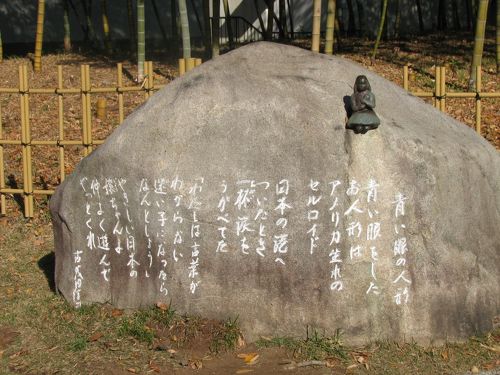 青い眼の人形
青い眼をした
お人形は
アメリカ生れの
セルロイド
日本の港へ
ついたとき
一杯涙を
うかべてた
「わたしは言葉が
わからない
迷い子になったら
なんとしょう」
やさしい日本の
嬢ちゃんよ
仲よく遊んで
やっとくれ